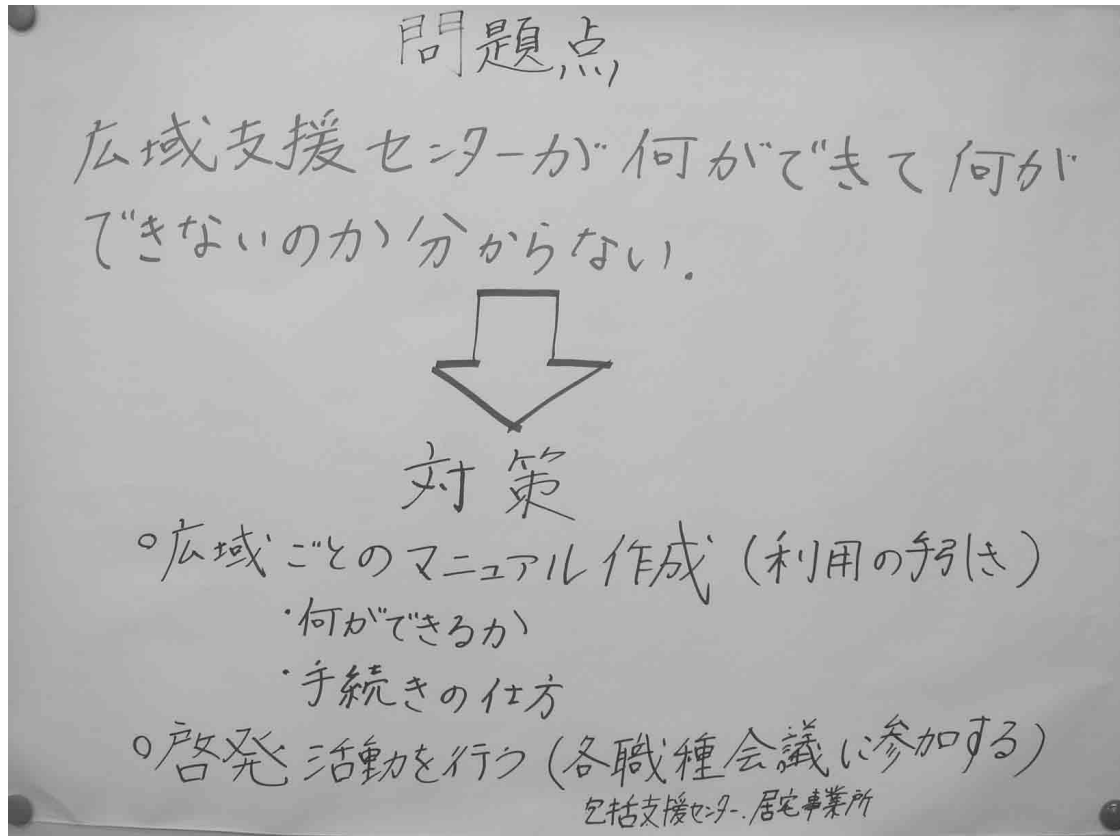 問題点
広域支援センターが何ができて何が
できないのか分からない.
対策
○広域ごとのマニュアル作成(利用の手引き)
・何ができるか
・手続きの仕方
○啓発活動を行う(各職種会議に参加する)
包括支援センター.居宅事業所